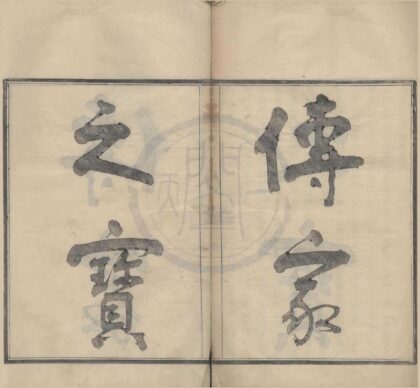 傳家
之寶